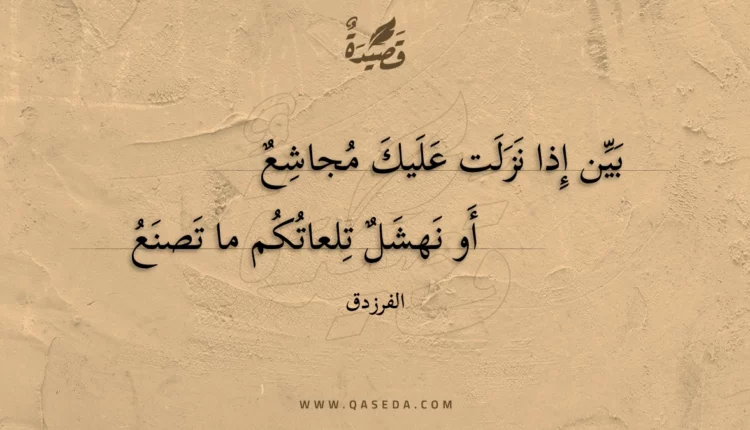 قَصِيدَةٌ
بَيِّن إِذا نَزَلَت عَلَيكَ مُجاشِعٌ
أَو نَهشَلٌ تِلعاتُكُم ما تَصنَعُ
الفرزدق
WWW.QASEDA.COM